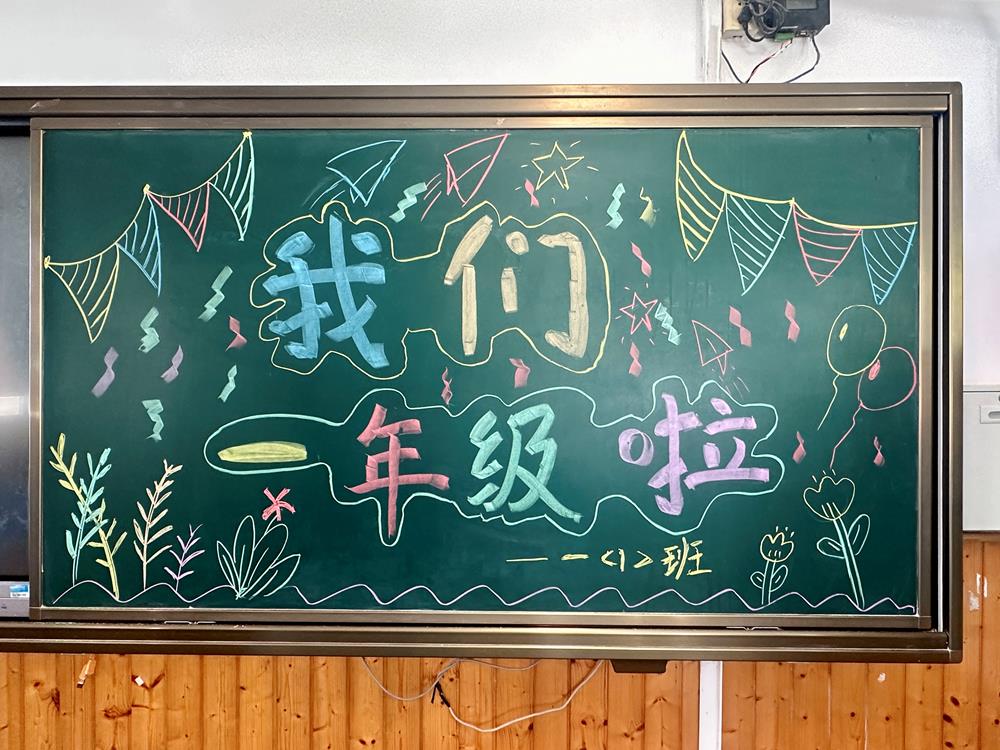 我们
一年级啦
——一<1>班